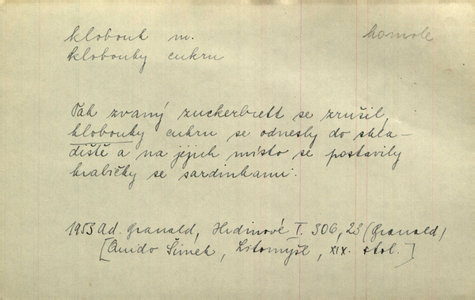 klobouk m. homole
klobouky cukru
Tak zvaný zuckerbrett se zrušil,
klobouky cukru se odnesly do skla-
diště a na jejich místo se postavily
krabičky se sardinkami.
1953 Ad. Granald, Hrdinové I. 306, 23 (Granald)
[Quido Šimek, Litomyšl, XIX. stol.]